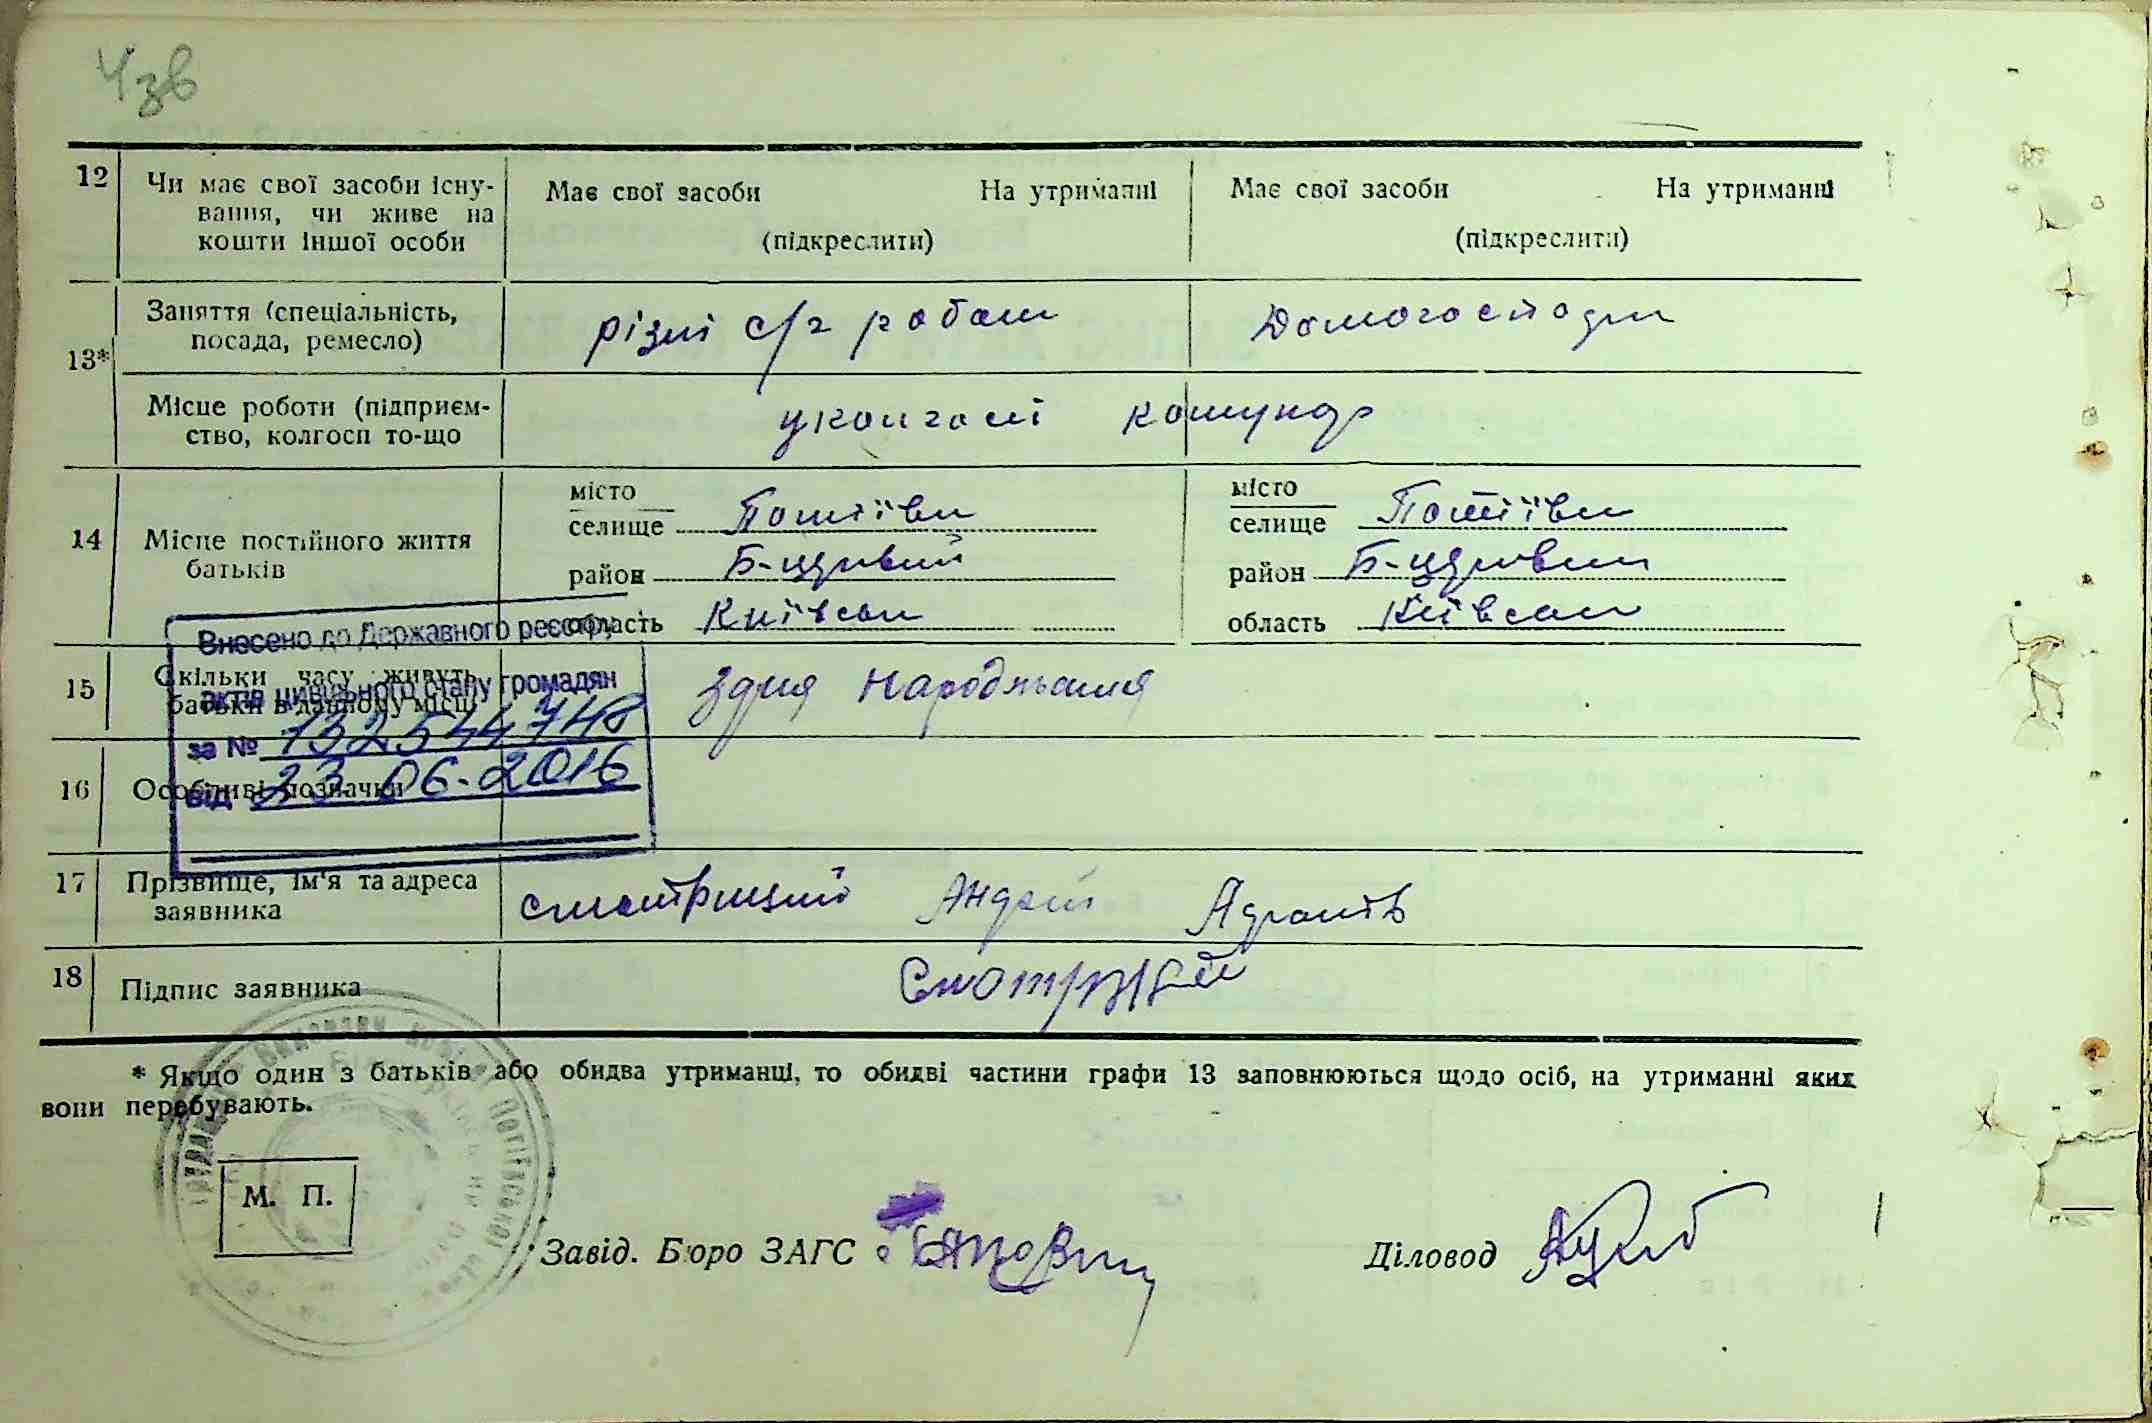 4зв
12 Чи має свої засоби існу-
вання, чи живе на
кошти іншої особи
Має свої засоби На утриманні
(підкреслити)
Має свої засоби На утриманні
(підкреслити)
13*
Заняття (спеціальність,
посада, ремесло)
різні с/г робот
Домогосподр
Місце роботи (підприєм-
ство, колгосп то-що
колгоспі комунар
14 Місце постійного життя
батьків
місто
селище Потіївки
район Б-церквий
область Київськ
місто
селище Потіївки
район Б-церквий
область Київськ
15 Скільки часу живуть
батьки в данному місці
здня народження
Внесено до Державного реєстру
актів цивільного стану громадян
за №
від 23.06.2016
16 Особливі позначки
17 Прізвище, ім'я та адреса
заявника
смотрицкий Андрій
18 Підпис заявника
Смотрицкий
* Якщо один з батьків або обидва утриманці, то обидві частини графи 13 заповнюються щодо осіб, на утриманні яких
вони перебувають.
М. П.
Завід. Бюро ЗАГС
Діловод